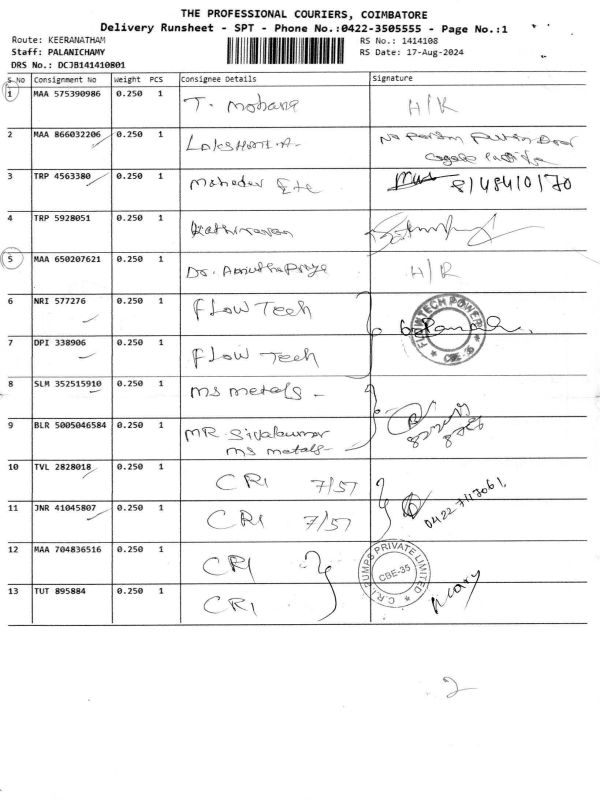 THE PROFESSIONAL COURIERS, COIMBATORE
Delivery Runsheet - SPT - Phone No.:0422-3505555 - Page No.:1
Route: KEERANATHAM
RS No.: 1414108
Staff: PALANICHAMY
RS Date: 17-Aug-2024
DRS No.: DCJB141410801
S No Consignment No Weight PCS Consignee Details Signature
1 MAA 575390986 0.250 1 T. Mohana H/K
2 MAA 866032206 0.250 1 LAKSHMI.A.
3 TRP 4563380 0.250 1 Mahadev
4 TRP 5928051 0.250 1 Kathiravan
5 MAA 650207621 0.250 1 Dr. H/R
6 NRI 577276 0.250 1 FLOW Tech
FLOWTECH POWER
CBE-35
7 DPI 338906 0.250 1 FLOW Tech
8 SLM 352515910 0.250 1 MS Metals -
9 BLR 5005046584 0.250 1 MR. Sivakumar
MS Metals -
10 TVL 2828018 0.250 1 CRI 7/57
11 JNR 41045807 0.250 1 CRI 7/57
12 MAA 704836516 0.250 1 CRI
C.R.I. PUMPS PRIVATE LIMITED
CBE-35
13 TUT 895884 0.250 1 CRI
2